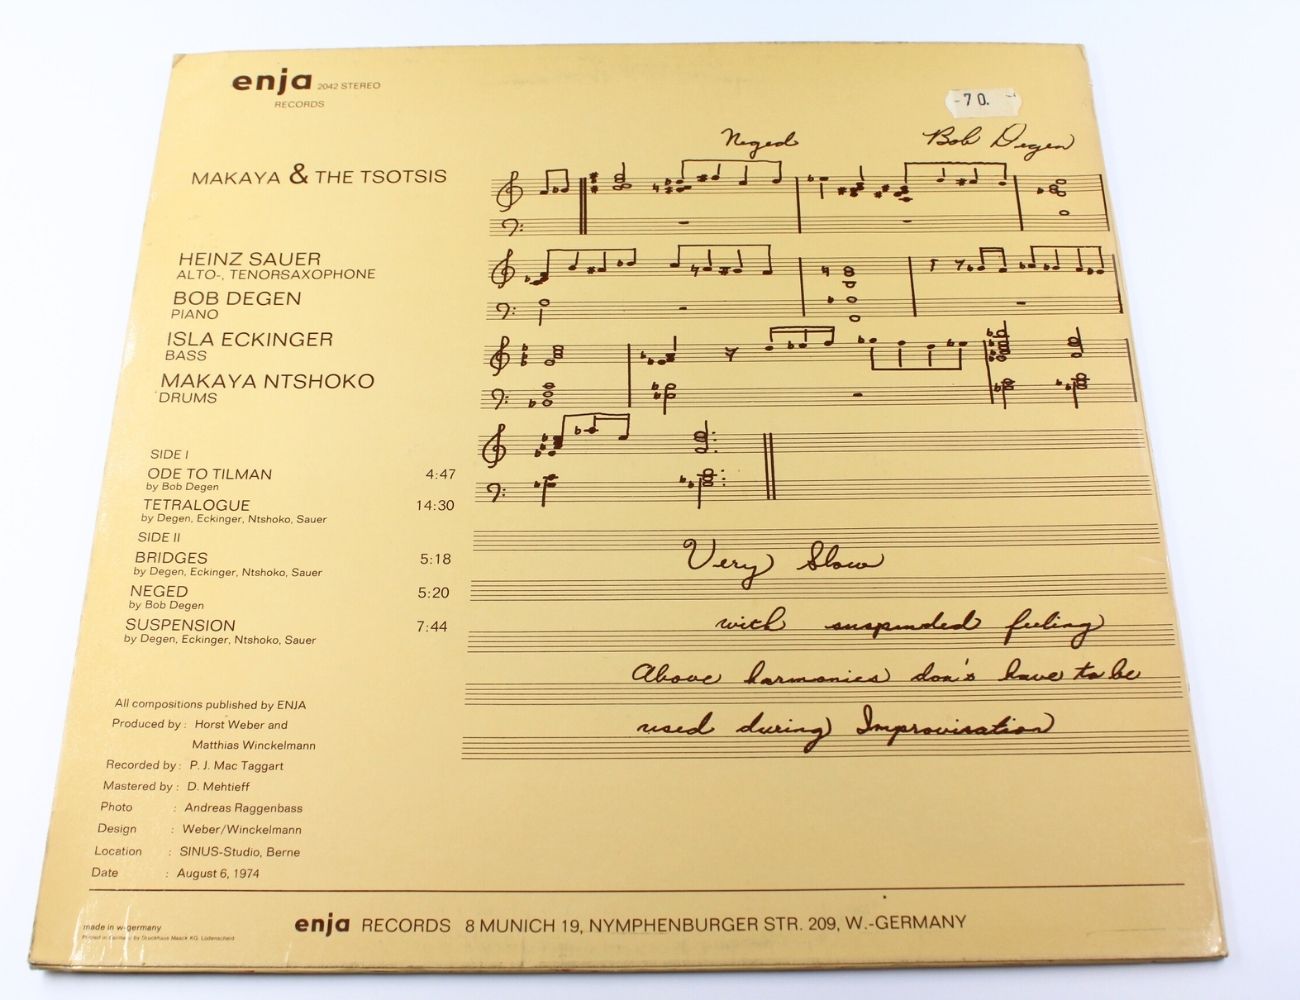 enja 2042 STEREO
RECORDS
-70.
Neged
Bob Degen
MAKAYA & THE TSOTSIS
HEINZ SAUER
ALTO-, TENORSAXOPHONE
BOB DEGEN
PIANO
ISLA ECKINGER
BASS
MAKAYA NTSHOKO
DRUMS
SIDE I
ODE TO TILMAN 4:47
by Bob Degen
TETRALOGUE 14:30
by Degen, Eckinger, Ntshoko, Sauer
SIDE II
BRIDGES 5:18
by Degen, Eckinger, Ntshoko, Sauer
NEGED 5:20
by Bob Degen
SUSPENSION 7:44
by Degen, Eckinger, Ntshoko, Sauer
Very Slow
with suspended feeling
Above harmonies don't have to be
used during Improvisation
All compositions published by ENJA
Produced by : Horst Weber and
Matthias Winckelmann
Recorded by : P. J. Mac Taggart
Mastered by : D. Mehtieff
Photo : Andreas Raggenbass
Design : Weber/Winckelmann
Location : SINUS-Studio, Berne
Date : August 6, 1974
made in w-germany
Printed in Germany by Druckhaus Maack KG, Lüdenscheid
enja RECORDS 8 MUNICH 19, NYMPHENBURGER STR. 209, W.-GERMANY